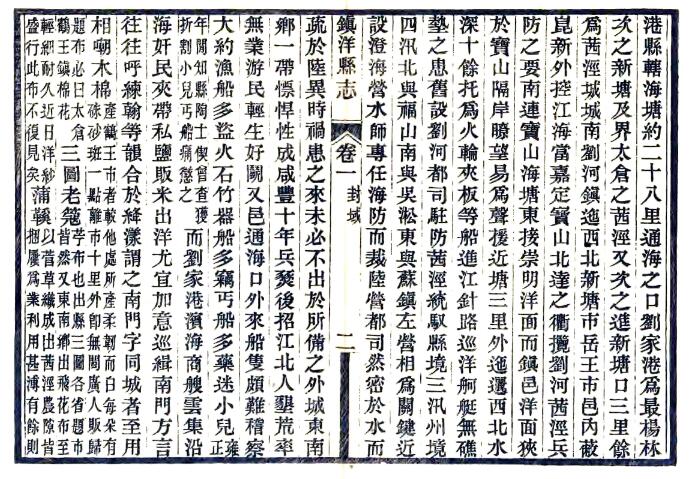 港縣轄海塘約二十八里通海之口劉家港爲最楊林
次之新塘及界太倉之茜涇又次之進新塘口三里餘
爲茜涇城城南劉河鎮迤西北新塘市岳王市邑內蔽
崑新外控江海當嘉定寶山北達之衝攬劉河茜涇兵
防之要南連寶山海塘東接崇明洋面而鎮邑洋面狹
於寶山隔岸瞭望易爲聲援近塘三里外迤邐西北水
深十餘托爲火輪夾板等船進江針路巡洋舸艇無礁
墊之患舊設劉河都司駐防茜涇統馭縣境三汛州境
四汛北與福山南與吳淞東與蘇鎮左營相爲關鍵近
設澄海營水師專任海防而裁陸營都司然密於水而
鎮洋縣志 卷一 封域 二
疏於陸異時禍患之來未必不出於所備之外城東南
鄉一帶慓悍性成咸豐十年兵燹後招江北人墾荒率
無業游民輕生好鬬又邑通海口外來船隻頗難稽察
大約漁船多盜火石竹器船多竊丐船多藥迷小兒雍正
年閒知縣陶士偰曾查獲折割小兒丐船痛懲之而劉家港濱海商艘雲集沿
海奸民夾帶私鹽販米出洋尤宜加意巡緝南門方言
往往呼練翰等韻合於絳漾謂之南門字同城者至用
相嘲木棉產鶴王市者較他處所產柔韌而白每朵有硃砂斑一點離市十里外卽無閩廣人販歸
題布必曰太倉鶴王鎮棉花三圖老菀苧布也出縣三圖各省題市皆然又東南鄉出飛花布至
輕細耐久近日洋紗盛行此布不復見矣蒲鞵以菅草織成出茜涇農隙皆捆屨爲業利用甚溥有餘則